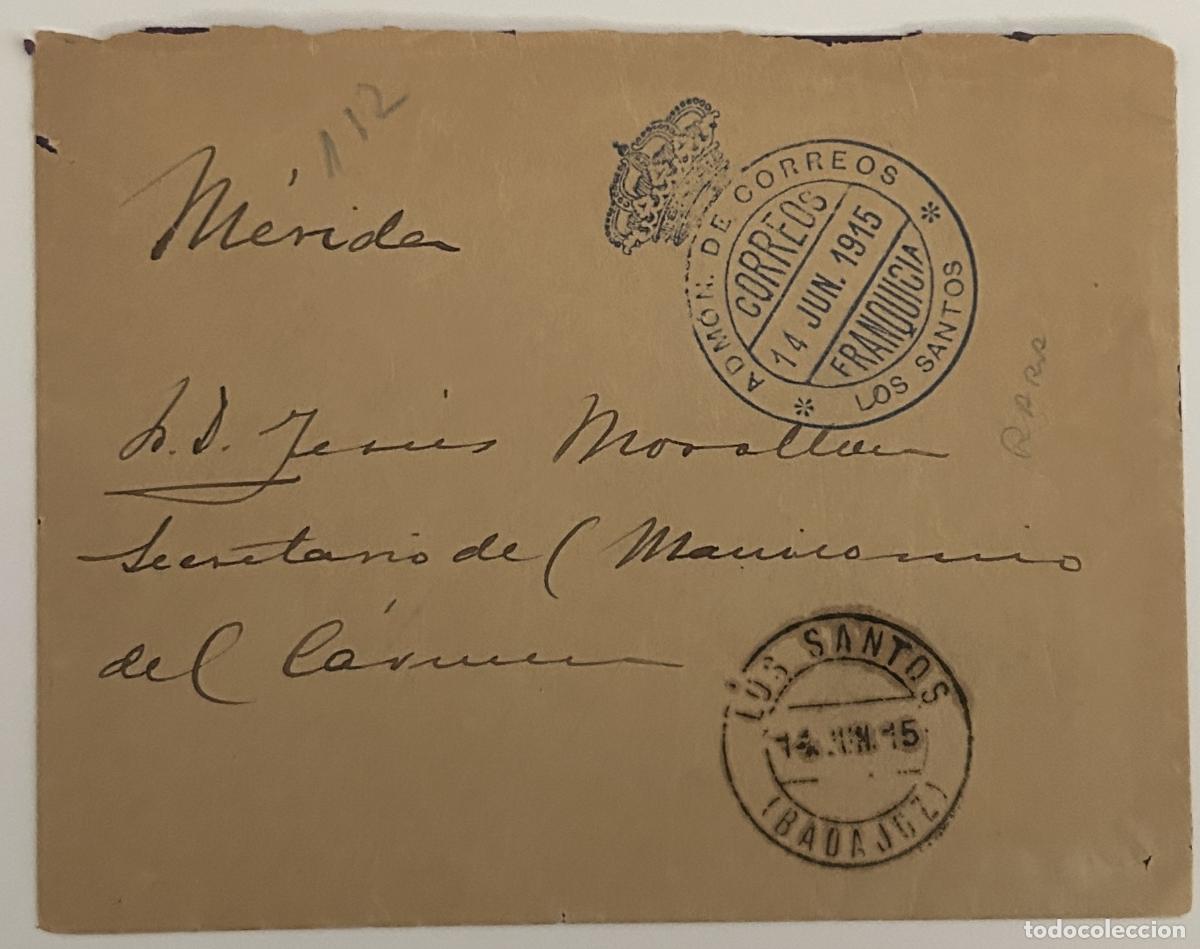 112
Mérida
ADMÓN. DE CORREOS
CORREOS
14 JUN. 1915
FRANQUICIA
* LOS SANTOS *
RARA
S. D. Jesús
Secretario del Manicomio
del Cármen
LOS SANTOS
14 JUN. 15
(BADAJOZ)
todocoleccion